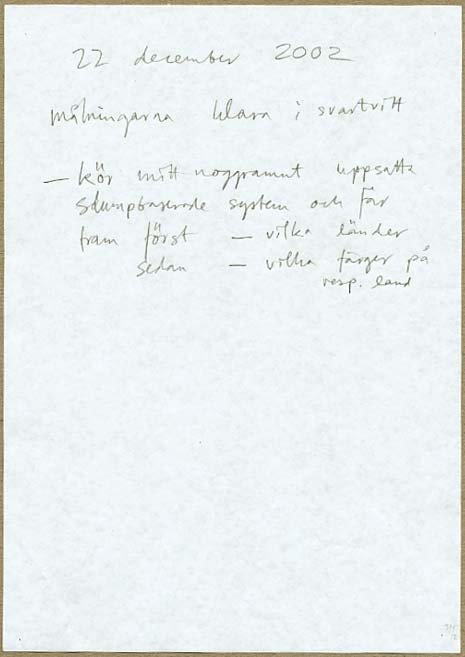 22 december 2002
målningarna klara i svartvitt
— kör mitt noggrannt uppsatta
slumpbaserade system och får
fram först — vilka länder
sedan — vilka färger på
resp. land